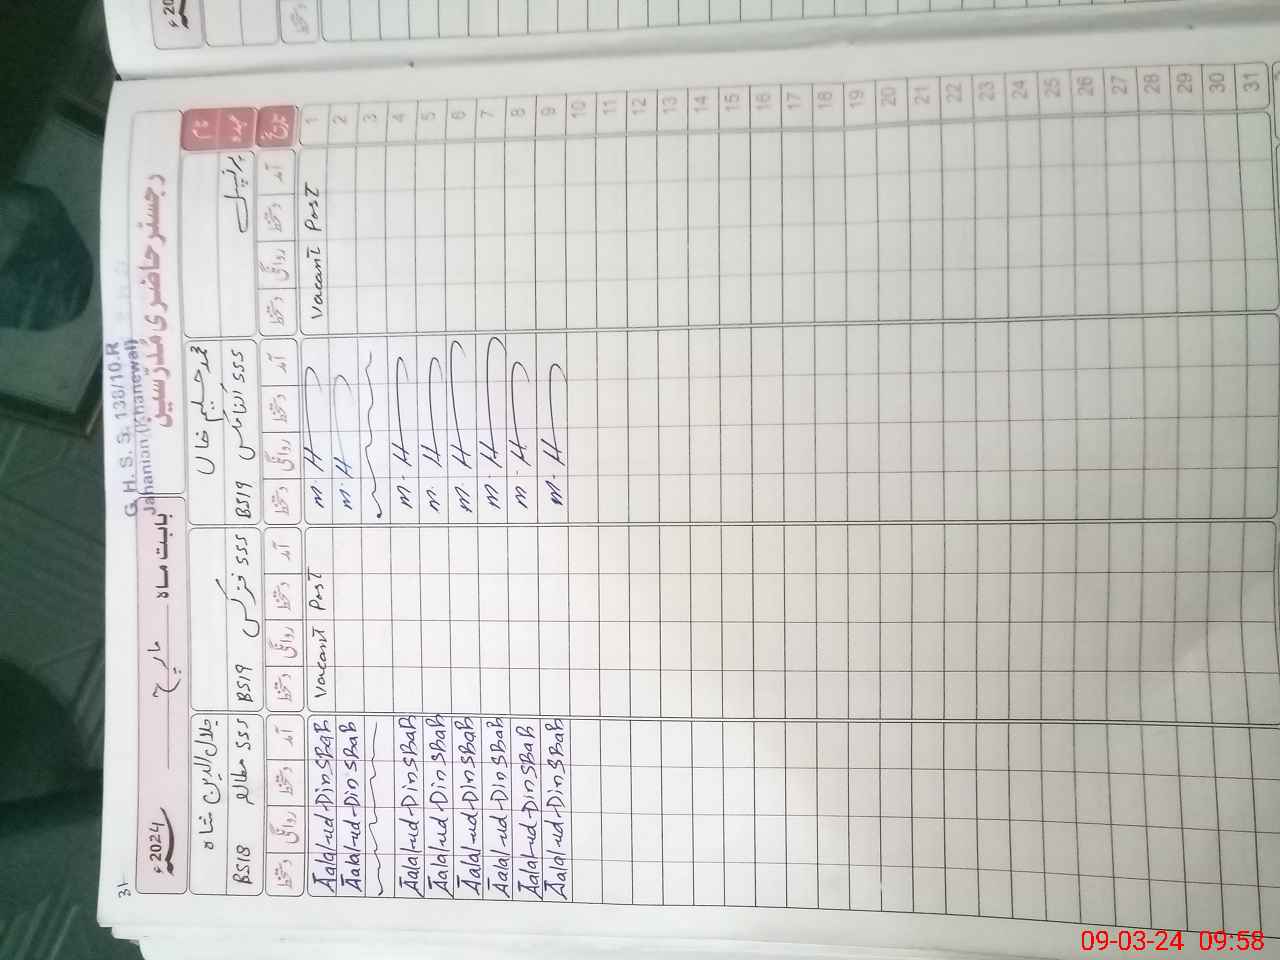 31
G. H. S. S. 138/10.R
Jahanian (Khanewal)
رجسٹر حاضری مُدرّسین بابت ماہ مارچ 2024ء
نام محمد حلیم خان جلال الدین شاہ
عہدہ پرنسپل SSS BS19 SSS فزکس BS19 SSS BS18
تاریخ آمد دستخط روانگی دستخط آمد دستخط روانگی دستخط آمد دستخط روانگی دستخط آمد دستخط روانگی دستخط
1 Vacant Post M.H Vacant Post Jalal-ud-Din
2 M.H Jalal-ud-Din
3
4 M.H Jalal-ud-Din
5 M.H Jalal-ud-Din
6 M.H Jalal-ud-Din
7 M.H Jalal-ud-Din
8 M.H Jalal-ud-Din
9 M.H Jalal-ud-Din
10
11
12
13
14
15
16
17
18
19
20
21
22
23
24
25
26
27
28
29
30
31
09-03-24 09:58